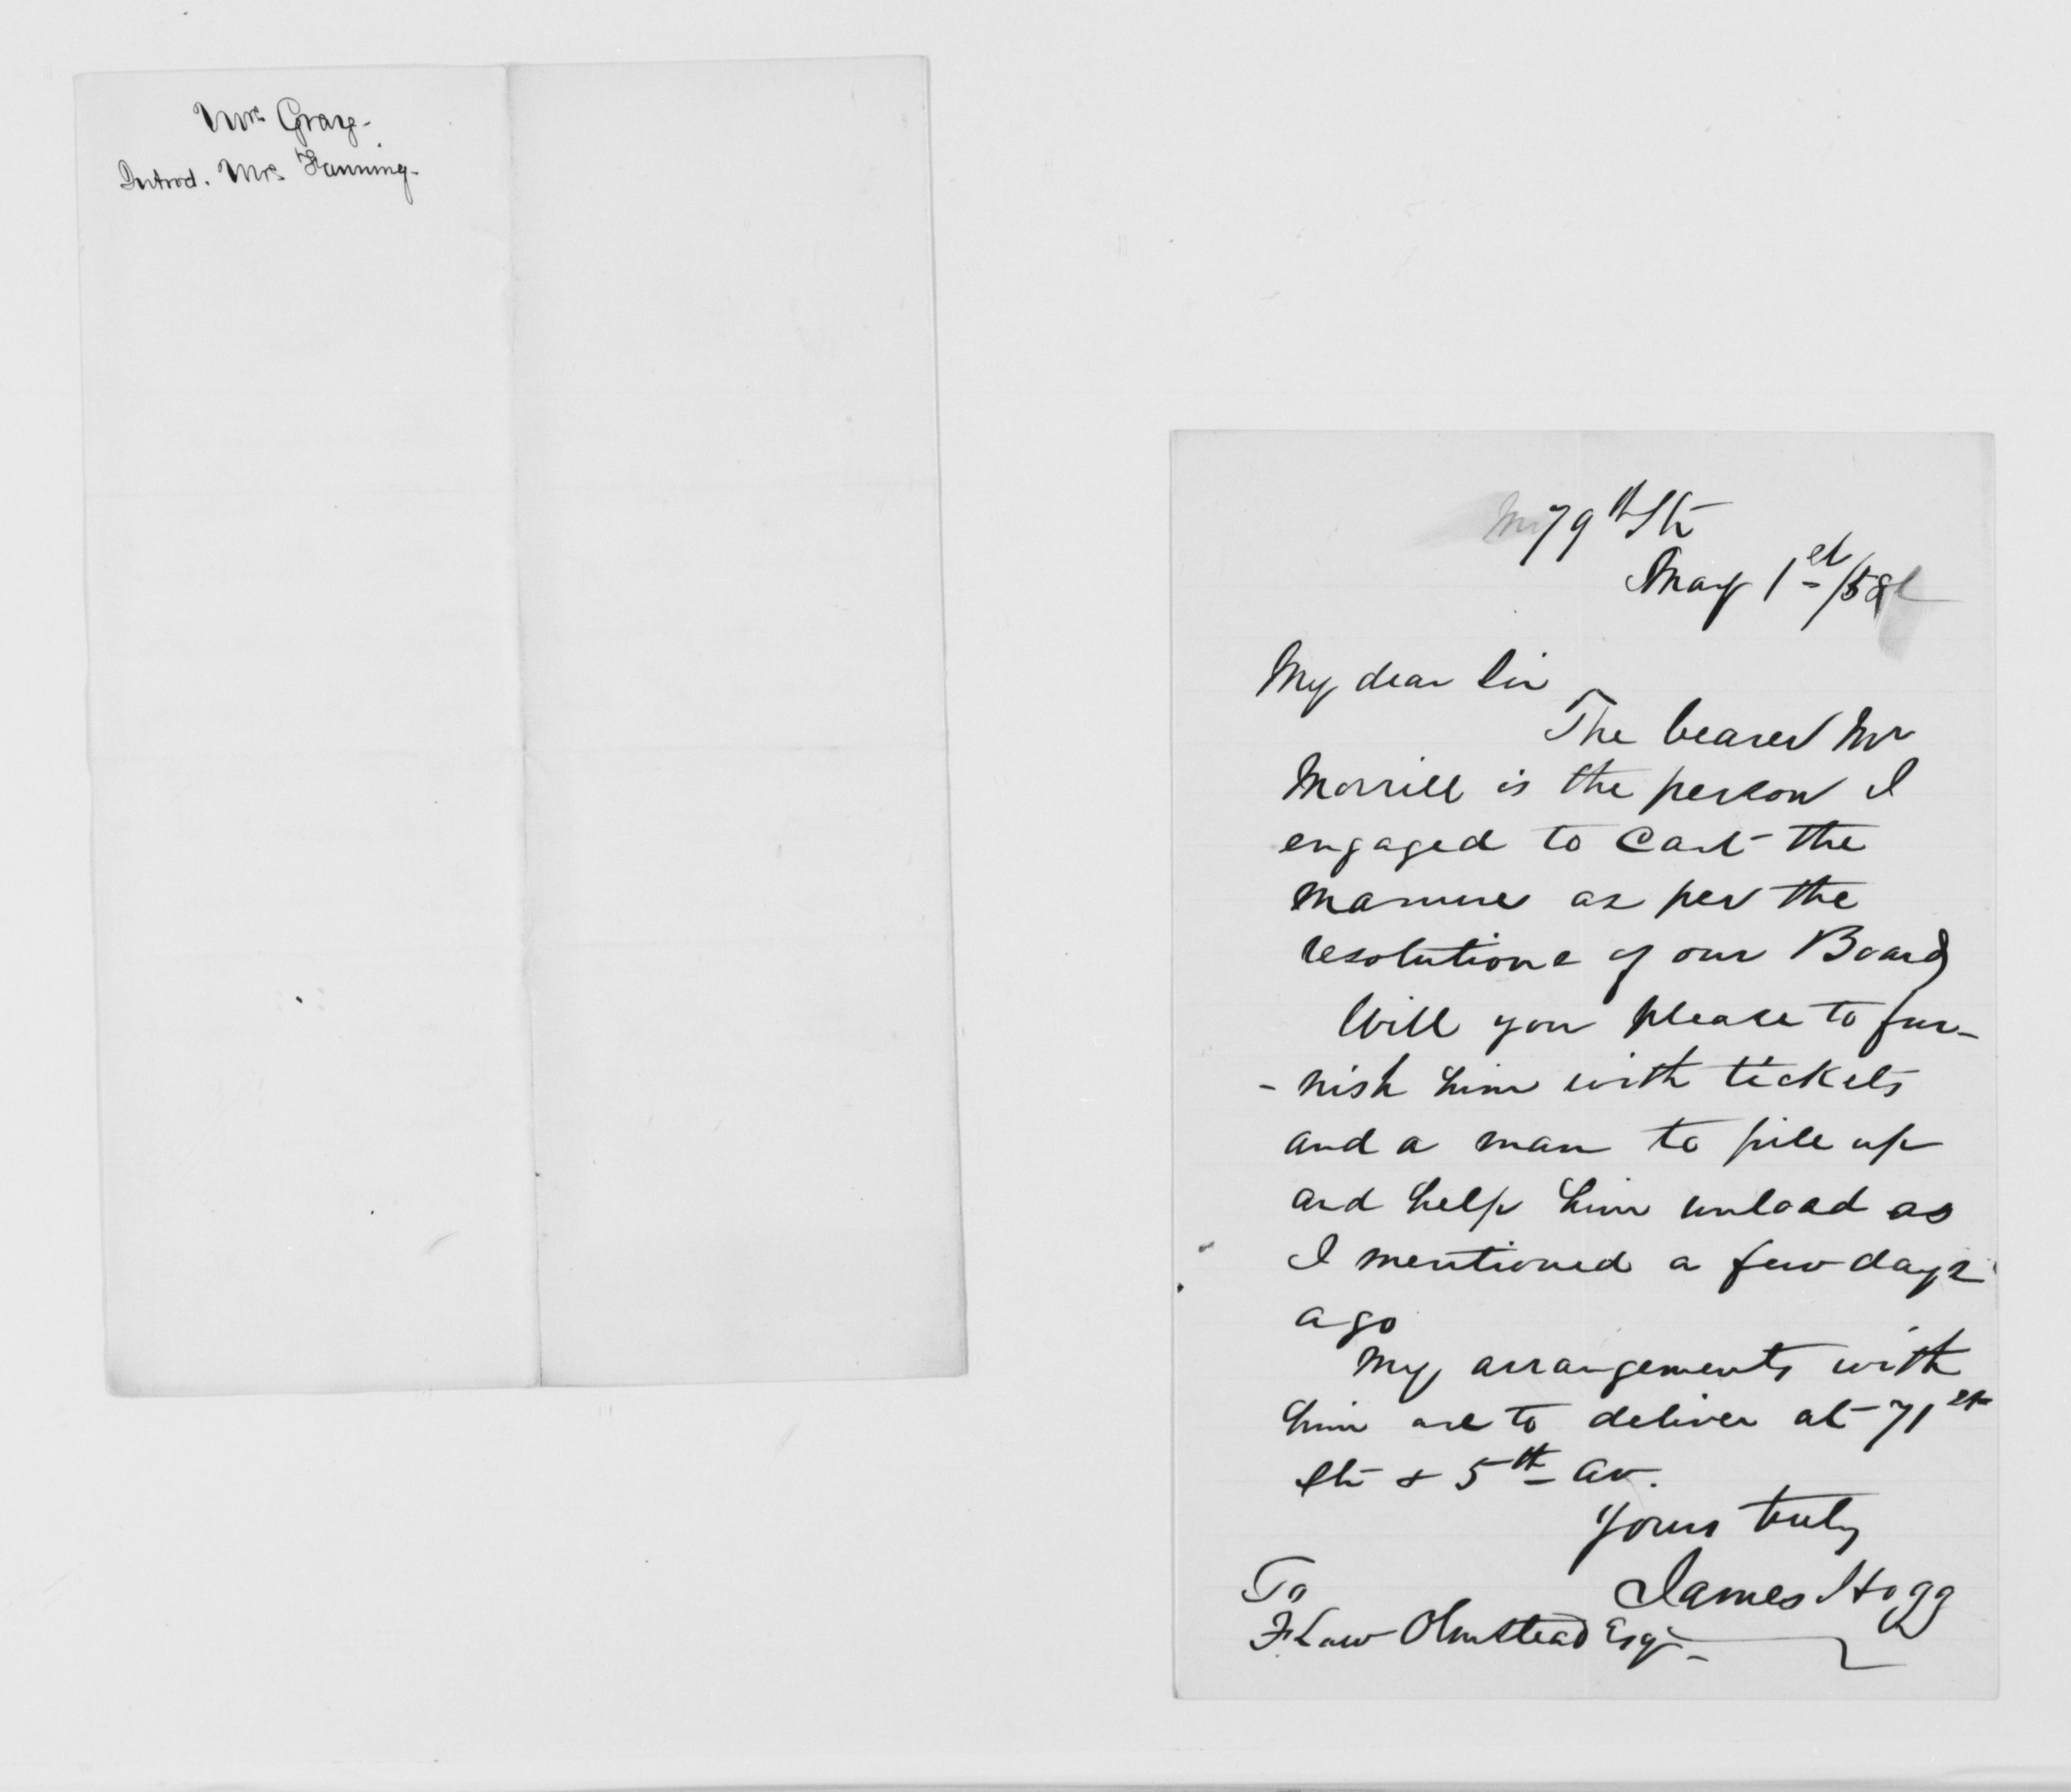 Mrs Gray-
Introd. Mrs Fanning-
79th St
May 1st/58
My dear Sir
The bearer Mr
Morrill is the person I
engaged to Cart the
manure as per the
resolutions of our Board
Will you please to fur-
-nish him with tickets
and a man to pile up
and help him unload as
I mentioned a few days
ago
My arrangements with
him are to deliver at 71st
St & 5th Av.
Yours truly
James Hogg
To
F. Law Olmstead Esq-